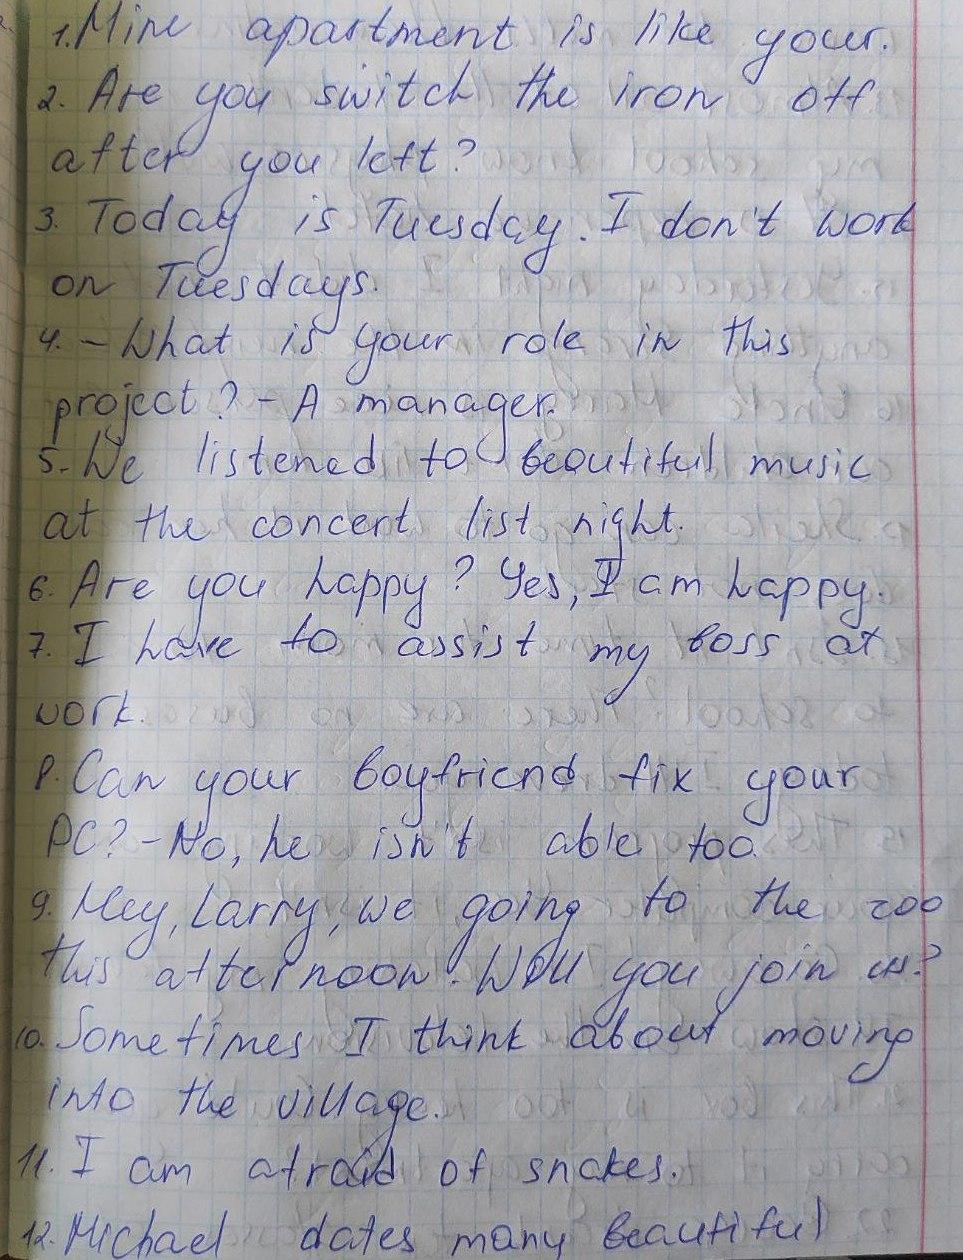 1. Mine apartment is like your.
2. Are you switch the iron off
after you left?
3. Today is Tuesday. I don't work
on Tuesdays.
4. - What is your role in this
project? - A manager.
5. We listened to beautiful music
at the concert list night.
6. Are you happy? Yes, I am happy.
7. I have to assist my boss at
work.
8. Can your boyfriend fix your
PC? - No, he isn't able too.
9. Hey, Larry, we going to the zoo
this afternoon. Will you join us?
10. Sometimes I think about moving
into the village.
11. I am afraid of snakes.
12. Michael dates many beautiful